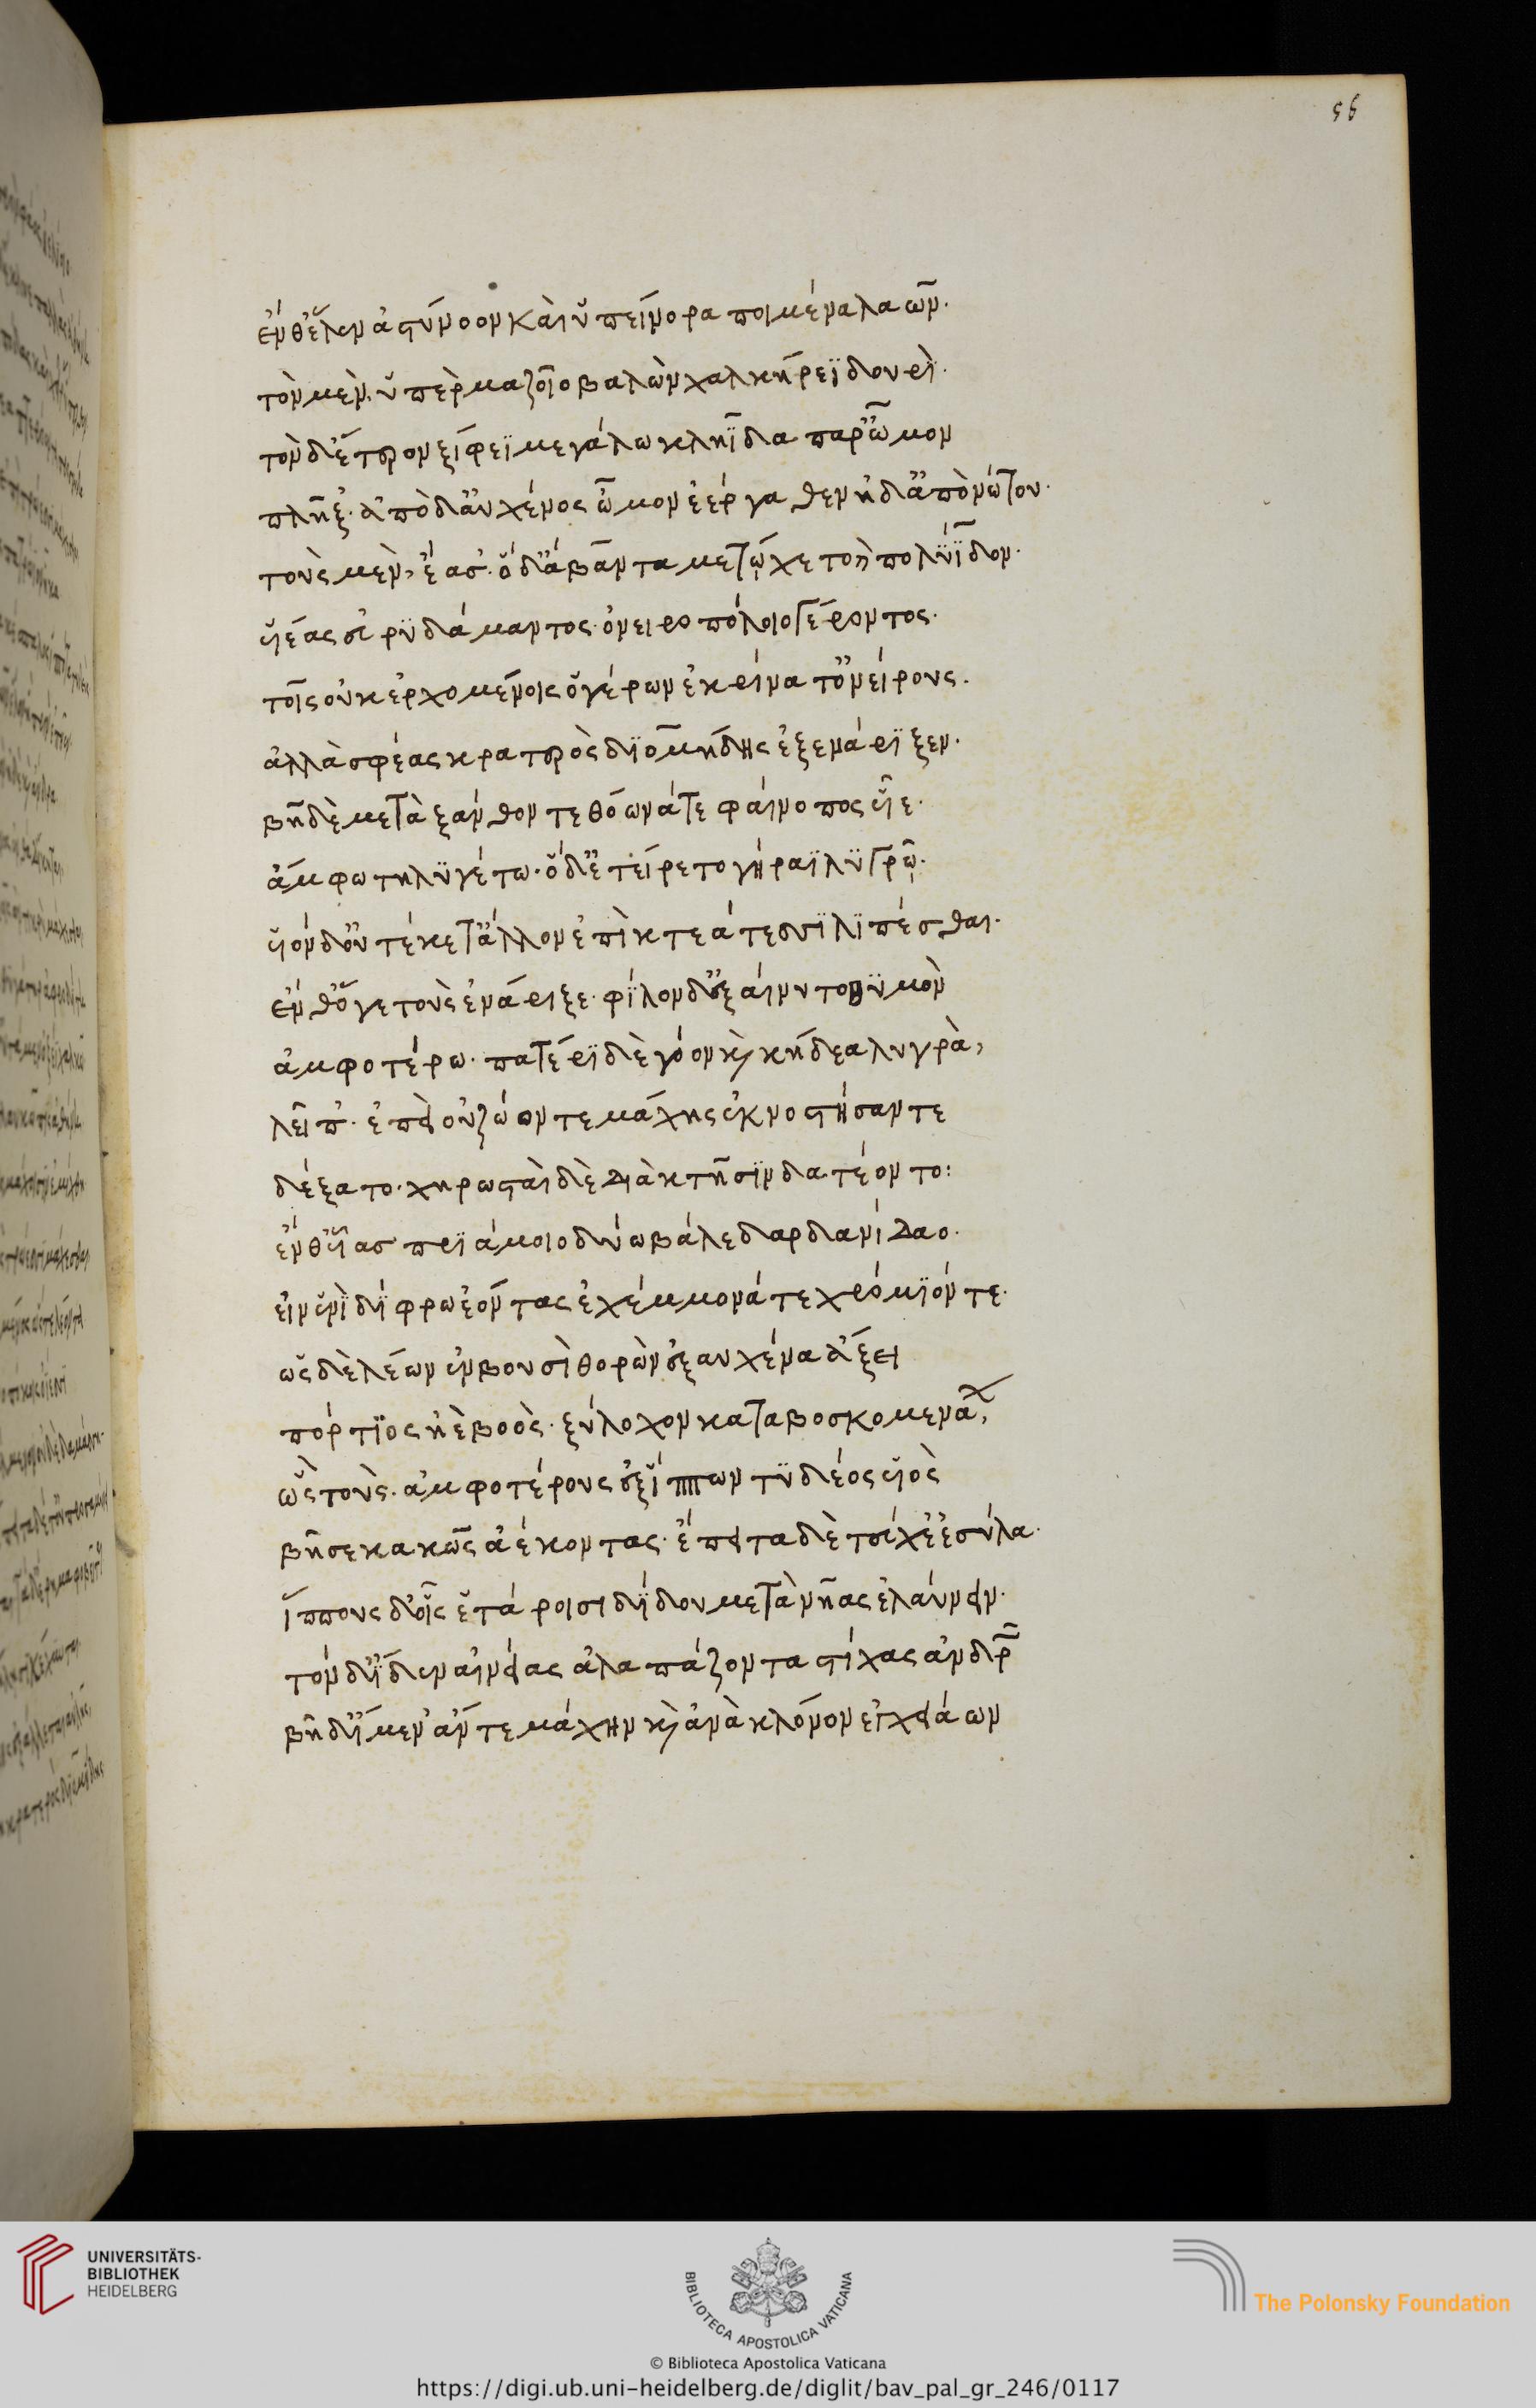 56
ἔνθ' ἕλεν ἀστύνοον καὶ ὑπείνορα ποιμένα λαῶν·
τὸν μὲν ὑπὲρ μαζοῖο βαλὼν χαλκήρεϊ δουρί·
τὸν δ' ἕτερον ξίφεϊ μεγάλω κληῗδα παρ' ὦμον
πλῆξ'· ἀπὸ δ' αὐχένος ὦμον ἐέργαθεν ἠδ' ἀπὸ νώτου·
τοὺς μὲν, ἔασ'· ὁ δ' ἄβαντα μετῴχετο καὶ πολύϊδον·
υἱέας εὐρϋδάμαντος ὀνειροπόλοιο γέροντος·
τοῖς οὐκ ἐρχομένοις ὁ γέρων ἐκρίνατ' ὀνείρους·
ἀλλὰ σφέας κρατερὸς διομήδης ἐξενάριξεν·
βῆ δὲ μετὰ ξάνθον τε θόωνά τε φαίνοπος υἷε·
ἄμφω τηλυγέτω· ὁ δ' ἐτείρετο γήραϊ λυγρῷ·
υἱὸν δ' οὐ τέκετ' ἄλλον ἐπὶ κτεάτεσσι λιπέσθαι·
ἔνθ' ὅγε τοὺς ἐνάριξε· φίλον δ' ἐξαίνυτο θυμὸν
ἀμφοτέρω· πατέρι δὲ γόον καὶ κήδεα λυγρὰ,
λεῖπ'· ἐπεὶ οὐ ζώοντε μάχης ἐκνοστήσαντε
δέξατο· χηρωσταὶ δὲ διὰ κτῆσιν δατέοντο:
ἔνθ' υἷας πριάμοιο δύω βάλε δαρδανίδαο·
εἰν ἑνὶ δίφρω ἐόντας ἐχέμμονά τε χρομίόν τε·
ὡς δὲ λέων ἐν βουσὶ θορὼν ἐξ αὐχένα ἄξει
πόρτιος ἠὲ βοὸς· ξύλοχον κάτα βοσκομενάων,
ὣς τοὺς ἀμφοτέρους ἐξ ἵππων τυδέος υἱὸς
βῆσε κακῶς ἀέκοντας· ἔπειτα δὲ τεύχε' ἐσύλα·
ἵππους δ' οἷς ἑτάροισι δίδου μετὰ νῆας ἐλαύνειν·
τὸν δ' ἴδεν αἰνείας ἀλαπάζοντα στίχας ἀνδρῶν
βῆ δ' ἴμεν ἄν τε μάχην καὶ ἀνὰ κλόνον ἐγχειάων
UNIVERSITÄTS-
BIBLIOTHEK
HEIDELBERG
BIBLIOTECA APOSTOLICA VATICANA
The Polonsky Foundation
© Biblioteca Apostolica Vaticana
https://digi.ub.uni-heidelberg.de/diglit/bav_pal_gr_246/0117